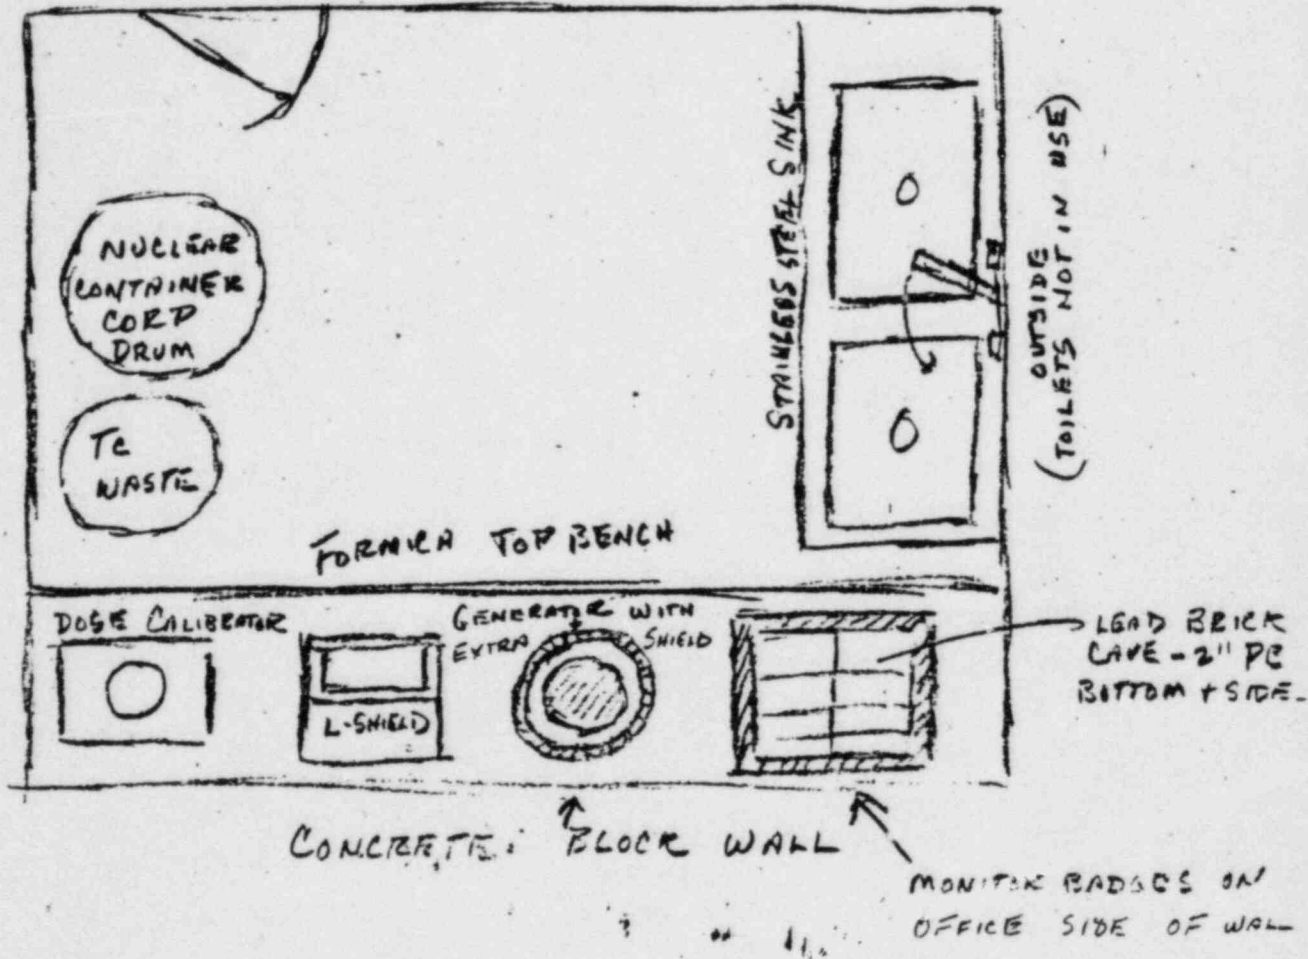 NUCLEAR
CONTAINER
CORP
DRUM
TC
WASTE
STAINLESS STEEL SINK
OUTSIDE
(TOILETS NOT IN USE)
FORMICA TOP BENCH
DOSE CALIBRATOR
L-SHIELD
GENERATOR WITH
EXTRA SHIELD
LEAD BRICK
CAVE - 2" PB
BOTTOM + SIDE
CONCRETE BLOCK WALL
MONITOR BADGES ON
OFFICE SIDE OF WALL